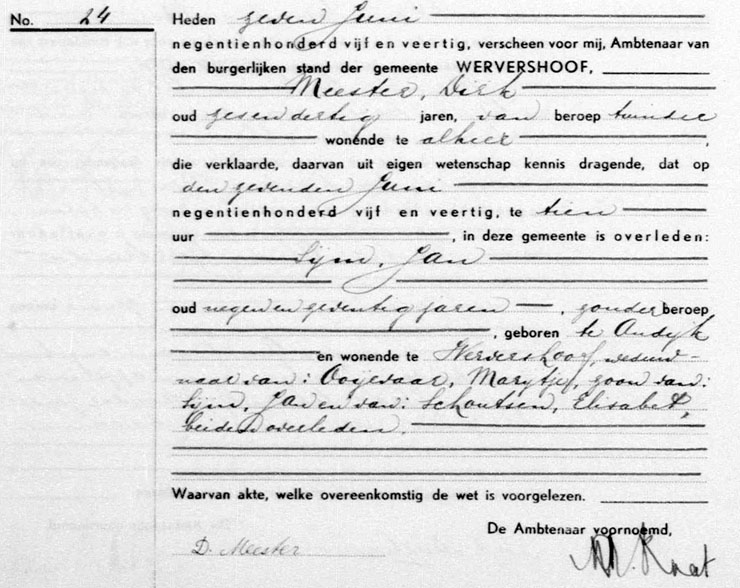 No. 24
Heden zeven Juni
negentienhonderd vijf en veertig, verscheen voor mij, Ambtenaar van
den burgerlijken stand der gemeente WERVERSHOOF,
Meester, Dirk
oud zesendertig jaren, van beroep tuinder
wonende te alhier,
die verklaarde, daarvan uit eigen wetenschap kennis dragende, dat op
den zevenden Juni
negentienhonderd vijf en veertig, te tien
uur, in deze gemeente is overleden:
Sijm, Jan
oud negen en zeventig jaren, zonder beroep
, geboren te Andijk
en wonende te Wervershoof, weduw-
naar van: Ooijevaar, Marijtje, zoon van:
Sijm, Jan en van: Schoutsen, Elisabet,
beiden overleden.
Waarvan akte, welke overeenkomstig de wet is voorgelezen.
De Ambtenaar voornoemd,
D. Meester